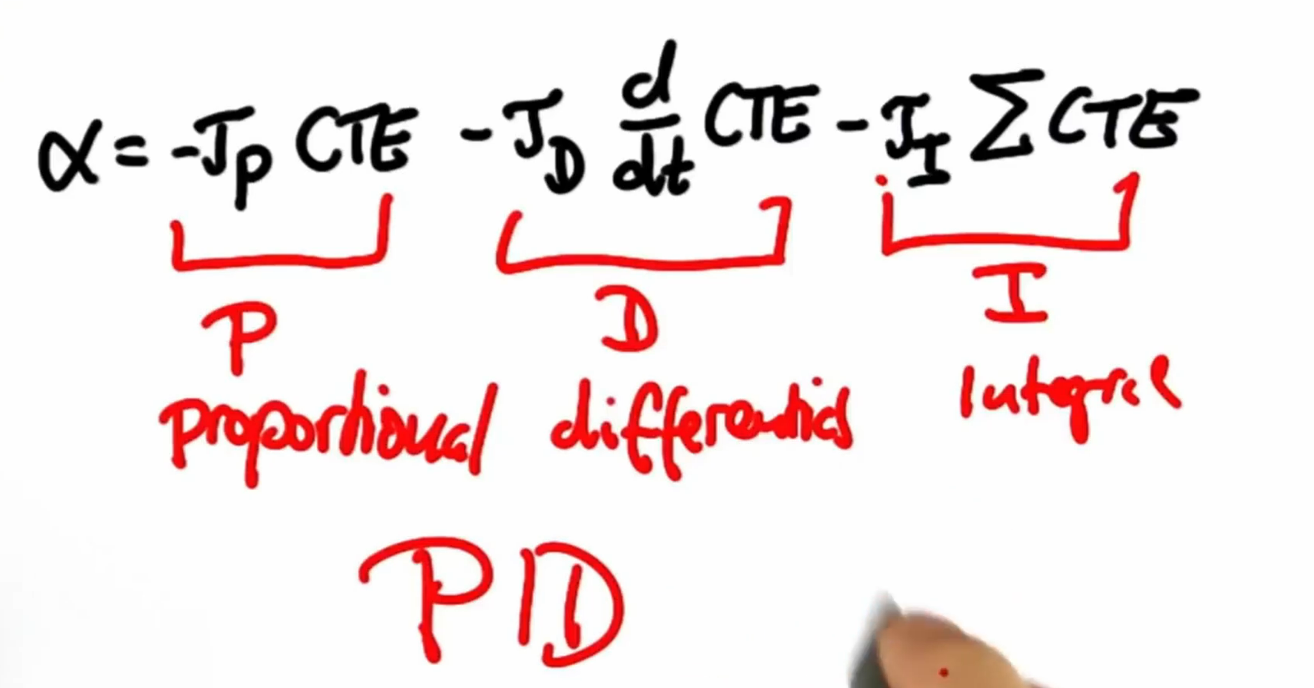 α = -J_P CTE - J_D d/dt CTE - J_I Σ CTE
P D I
proportional differential Integral
PID